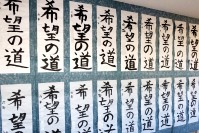 希望の道
希望の道
希望の道
希望の道
希望の道
希望の道
希望の道
希望の道
希望の道
希望の道
希望の道
希望の道
希望の道
希望の道